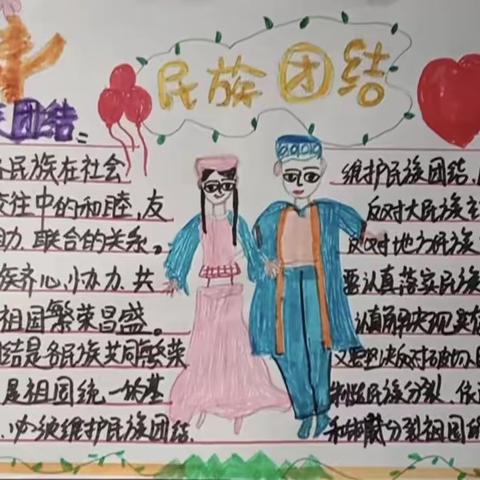 民族团结
团结:
各民族在社会
交往中的和睦,友
助、联合的关系。
族齐心协力、共
祖国繁荣昌盛。
结是各民族共同繁荣
是祖国统一的基
必须维护民族团结.
维护民族团结、
反对大民族主
反对地方民族
要认真落实民族
认真解决现实
又要坚决反对
制造民族分裂、依
和 分裂祖国的